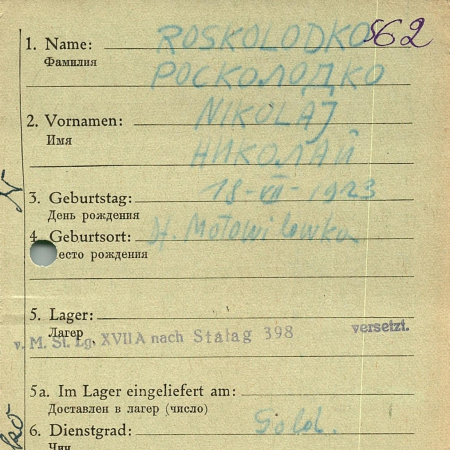 562
1. Name: ROSKOLODKO
Фамилия РОСКОЛОДКО
2. Vornamen: NIKOLAJ
Имя НИКОЛАЙ
3. Geburtstag: 18-VII-1923
День рождения
4. Geburtsort: Motowilewka
есто рождения
5. Lager:
Лагер
v. M. St. Lg. XVII A nach Stalag 398 versetzt.
5a. Im Lager eingeliefert am:
Доставлен в лагер (число)
6. Dienstgrad: Sold.
Чин